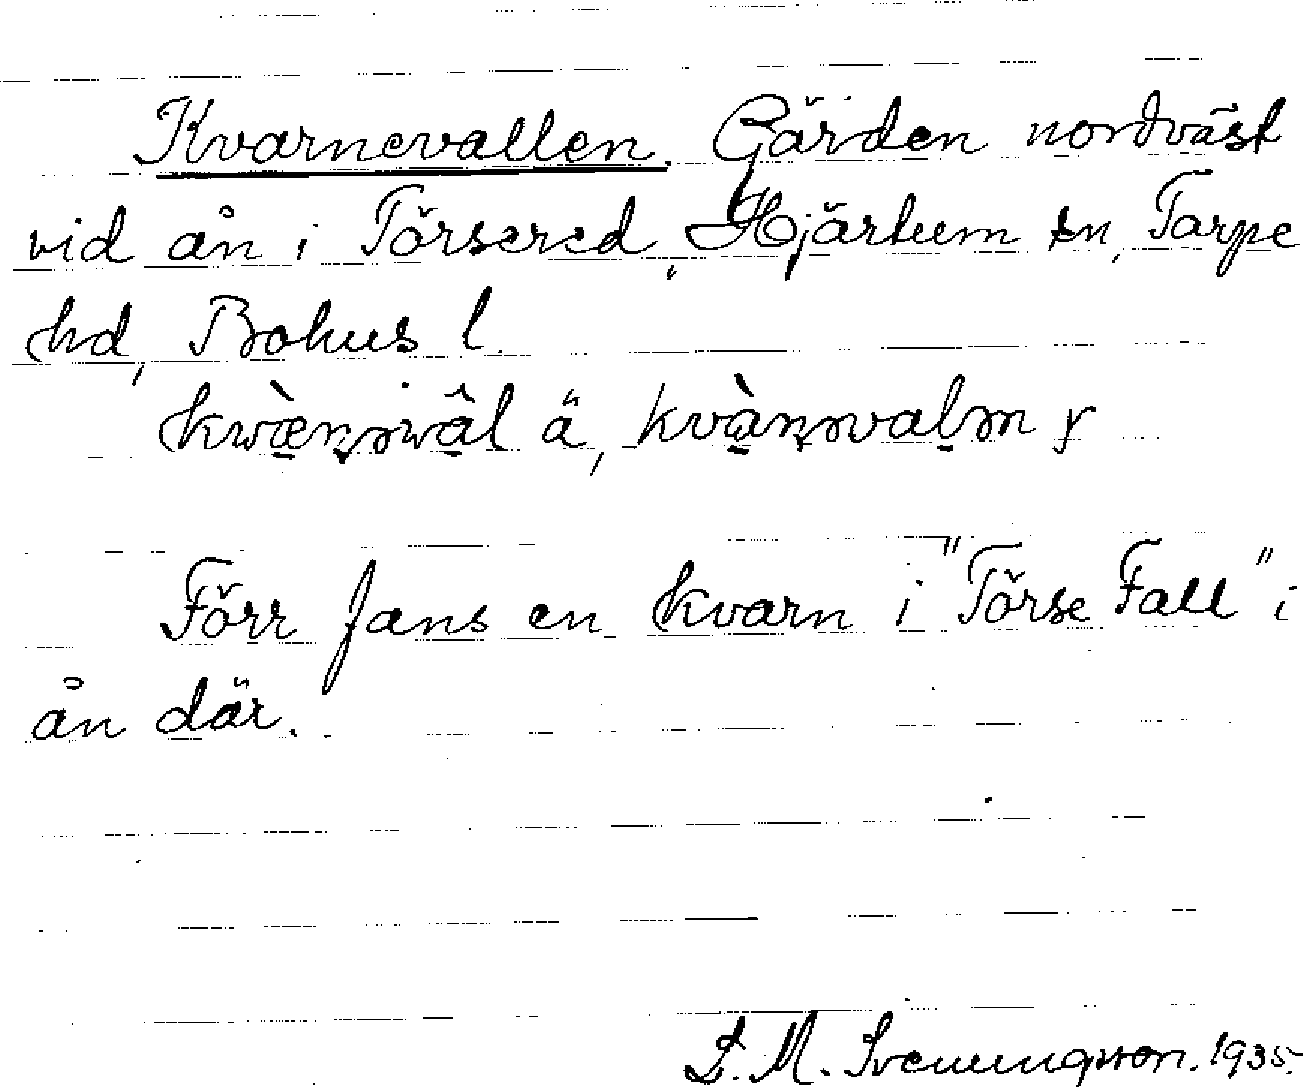 Kvarnevallen. Gärden nordväst
vid ån i Törsered, Hjärtum sn, Torpe
hd, Bohus l.
ä, y
Förr fans en kvarn i "Törse Fall" i
ån där.
S. M. Svenungsson. 1935.